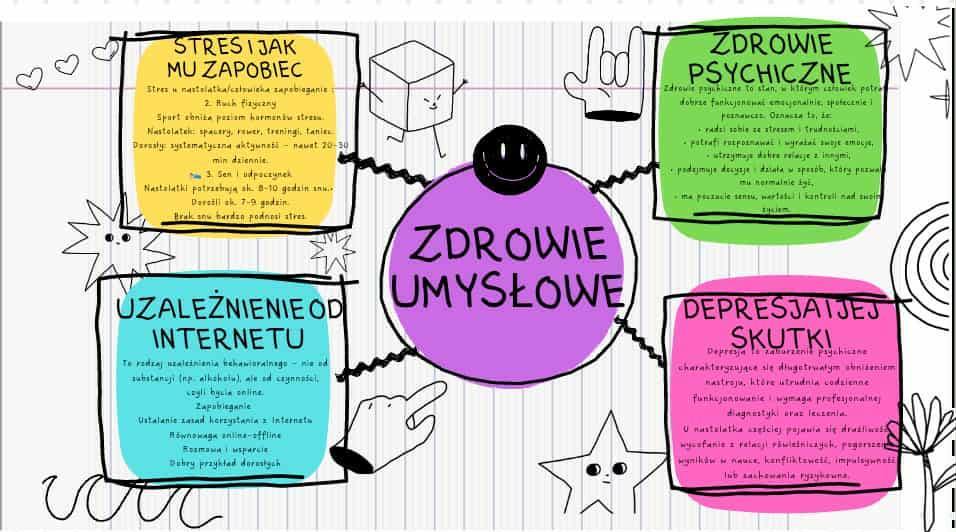 STRES I JAK
MU ZAPOBIEC
Stres u nastolatka/człowieka zapobieganie :
2. Ruch fizyczny
Sport obniża poziom hormonów stresu.
Nastolatek: spacery, rower, treningi, taniec.
Dorosły: systematyczna aktywność – nawet 20–30
min dziennie.
3. Sen i odpoczynek
Nastolatki potrzebują ok. 8–10 godzin snu.
Dorośli ok. 7–9 godzin.
Brak snu bardzo podnosi stres.
ZDROWIE
PSYCHICZNE
Zdrowie psychiczne to stan, w którym człowiek potrafi
dobrze funkcjonować emocjonalnie, społecznie i
poznawczo. Oznacza to, że:
• radzi sobie ze stresem i trudnościami,
• potrafi rozpoznawać i wyrażać swoje emocje,
• utrzymuje dobre relacje z innymi,
• podejmuje decyzje i działa w sposób, który pozwala
mu normalnie żyć,
• ma poczucie sensu, wartości i kontroli nad swoim
życiem.
ZDROWIE
UMYSŁOWE
UZALEŻNIENIE OD
INTERNETU
To rodzaj uzależnienia behawioralnego – nie od
substancji (np. alkoholu), ale od czynności,
czyli bycia online.
Zapobieganie
Ustalanie zasad korzystania z Internetu
Równowaga online-offline
Rozmowa i wsparcie
Dobry przykład dorosłych
DEPRESJA I JEJ
SKUTKI
Depresja to zaburzenie psychiczne
charakteryzujące się długotrwałym obniżeniem
nastroju, które utrudnia codzienne
funkcjonowanie i wymaga profesjonalnej
diagnostyki oraz leczenia.
U nastolatka częściej pojawia się drażliwość,
wycofanie z relacji rówieśniczych, pogorszenie
wyników w nauce, konfliktowość, impulsywność
lub zachowania ryzykowne.